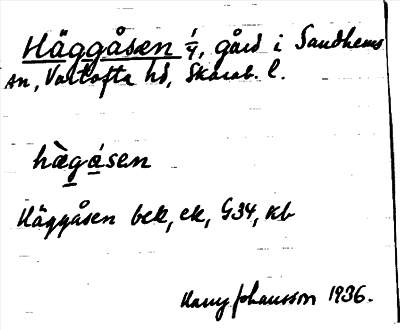 Häggåsen 1/4, gård i Sandhems
sn, Vartofta hd, Skarab. l.
hǟgåsen
Häggåsen bek, ek, G34, kb
Harry Johansson 1936.